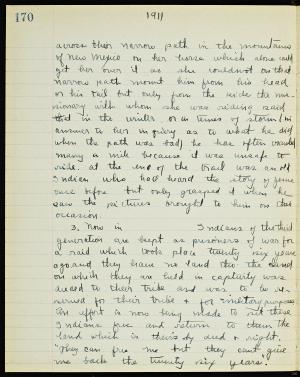 170
1911
across their narrow path in the mountains
of New Mexico on her horse which alone could
get her over it as she couldn't on that
narrow path mount him from his head
or his tail but only from the side the mis-
sionary with whom she was riding said
that in the winter or in times of storm (in
answer to her inquiry as to what he did
when the path was bad) he has often walked
many a mile because it was unsafe to
ride. at the end of the trail was an old
Indian who had heard the story of Jesus
once before but only grasped it when he
saw the pictures brought to him on that
occasion.
3. Now in Indians of the third
generation are kept as prisoners of war for
a raid which took place twenty six years
ago and they have no land tho' the land
on which they are held in captivity was
deeded to their tribe and was to be re-
served for their tribe & for military purposes
An effort is now being made to set these
Indians free and return to them the
land which is theirs by deed & right.
"They can free me but they can't give
me back the twenty six years."